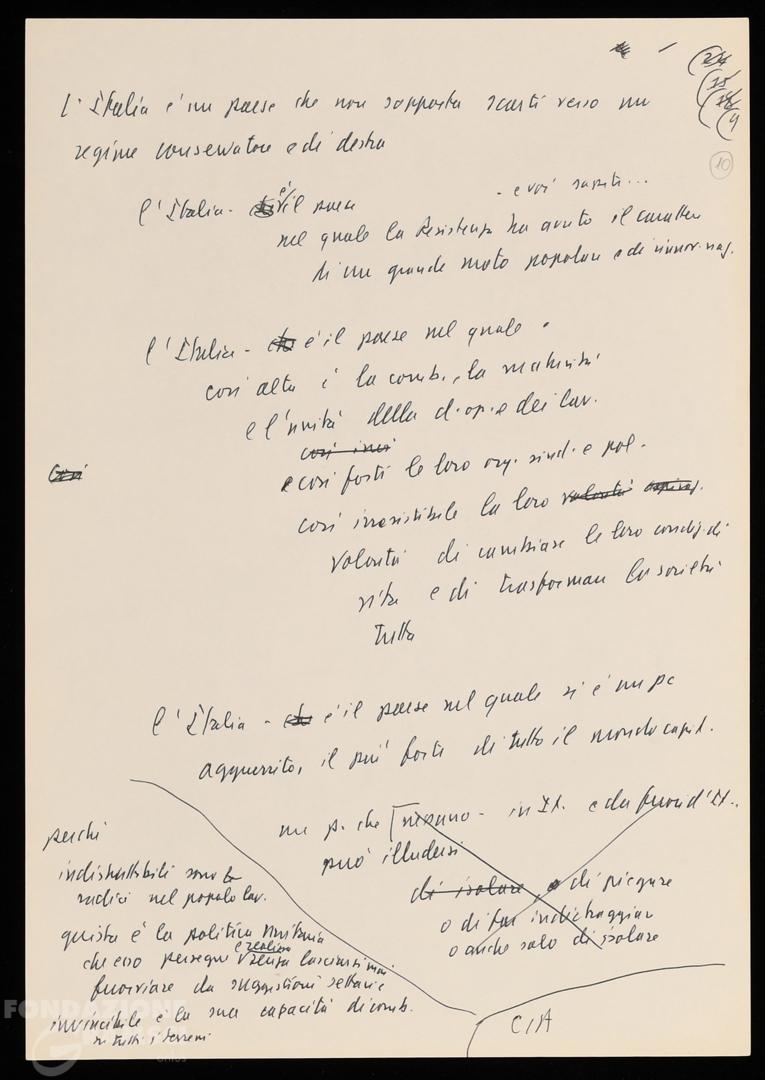 (10)
L'Italia è un paese che non sopporta scarti verso un
regime conservatore e di destra
l'Italia - è il paese - e voi sapete...
nel quale la Resistenza ha avuto il carattere
di un grande moto popolare e di rinnov. naz.
l'Italia - è il paese nel quale
così alta è la comb., la maturità
e l'unità della cl. op. e dei lav.
così
e così forti le loro org. sind. e pol.
così irresistibile la loro volontà
volontà di cambiare le loro condiz. di
vita e di trasformare la società
tutta
l'Italia - è il paese nel quale vi è un pc
agguerrito, il più forte di tutto il mondo capit.
un p. che [nessuno - in It. e da fuori d'It..
può illudersi
di isolare, di piegare
o di far indietreggiare
o anche solo di isolare
perché
indistruttibili sono le
radici nel popolo lav.
questa è la politica unitaria
che esso persegue e realizza senza lasciarsi mai
fuorviare da suggestioni settarie
invincibile è la sua capacità di comb.
su tutti i terreni
CIA
FONDAZIONE
GRAMSCI
ONLUS